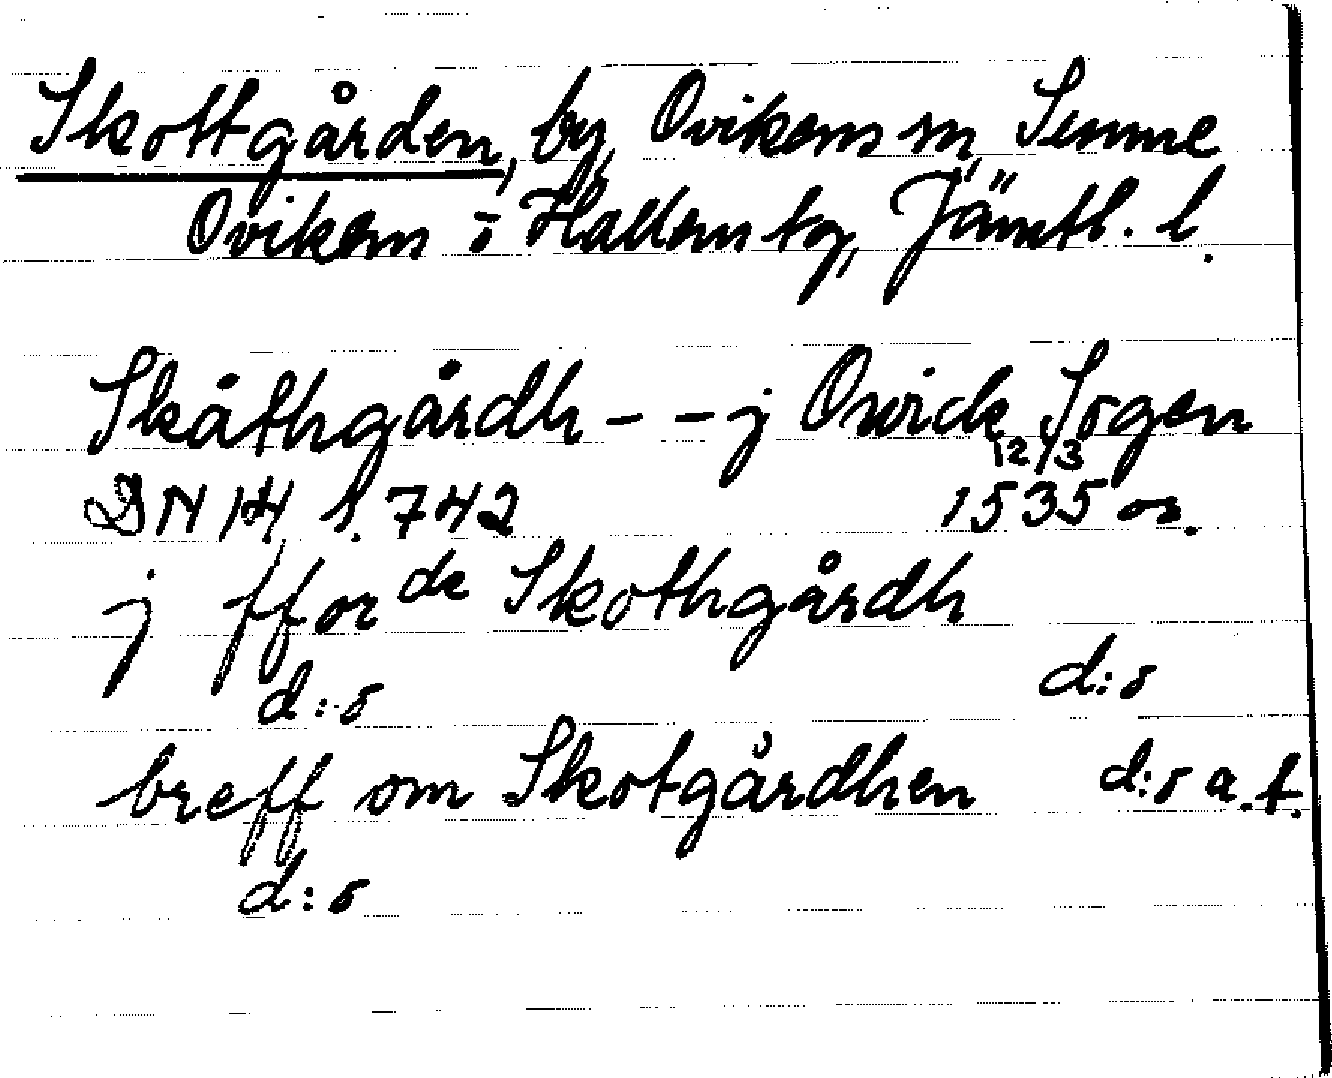 Skottgården, by, Ovikens sn, Sunne
Oviken o Hallens tg, Jämtl. l.
Skåthgårdh - - j Owick Sogen
12/3
DN 14 s. 742 1535 or.
j fforde Skothgårdh
d:o d:o
breff om Skotgårdhen d:o a.t.
d:o